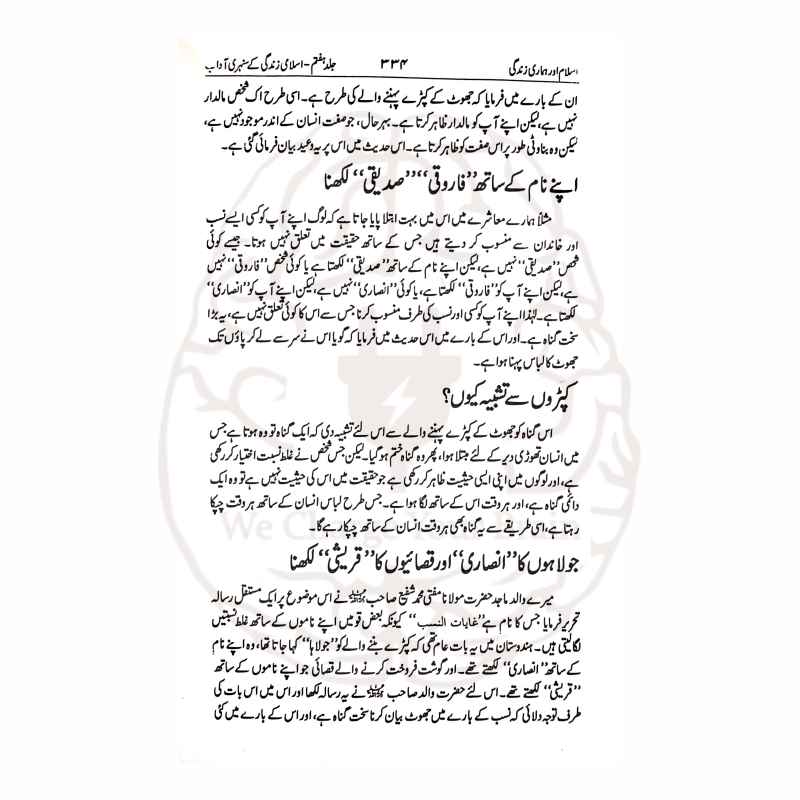 اسلام اور ہماری زندگی ۳۳۴ جلد ہفتم - اسلامی زندگی کے سنہری آداب
ان کے بارے میں فرمایا کہ جھوٹ کے کپڑے پہننے والے کی طرح ہے۔ اسی طرح اک شخص مالدار
نہیں ہے، لیکن اپنے آپ کو مالدار ظاہر کرتا ہے۔ بہرحال، جو صفت انسان کے اندر موجود نہیں ہے،
لیکن وہ بناوٹی طور پر اس صفت کو ظاہر کرتا ہے۔ اس حدیث میں اس پر یہ وعید بیان فرمائی گئی ہے۔
اپنے نام کے ساتھ ”فاروقی“ ”صدیقی“ لکھنا
مثلاً ہمارے معاشرے میں اس میں بہت ابتلا پایا جاتا ہے کہ لوگ اپنے آپ کو کسی ایسے نسب
اور خاندان سے منسوب کر دیتے ہیں جس کے ساتھ حقیقت میں تعلق نہیں ہوتا۔ جیسے کوئی
شخص ”صدیقی“ نہیں ہے، لیکن اپنے نام کے ساتھ ”صدیقی“ لکھتا ہے یا کوئی شخص ”فاروقی“ نہیں
ہے، لیکن اپنے آپ کو ”فاروقی“ لکھتا ہے، یا کوئی ”انصاری“ نہیں ہے، لیکن اپنے آپ کو ”انصاری“
لکھتا ہے۔ لہٰذا اپنے آپ کو کسی اور نسب کی طرف منسوب کرنا جس سے اس کا کوئی تعلق نہیں ہے، یہ بڑا
سخت گناہ ہے۔ اور اس کے بارے میں اس حدیث میں فرمایا کہ گویا اس نے سر سے لے کر پاؤں تک
جھوٹ کا لباس پہنا ہوا ہے۔
کپڑوں سے تشبیہ کیوں؟
اس گناہ کو جھوٹ کے کپڑے پہننے والے سے اس لئے تشبیہ دی کہ ایک گناہ تو وہ ہوتا ہے جس
میں انسان تھوڑی دیر کے لئے مبتلا ہوا، پھر وہ گناہ ختم ہو گیا۔ لیکن جس شخص نے غلط نسبت اختیار کر رکھی
ہے، اور لوگوں میں اپنی ایسی حیثیت ظاہر کر رکھی ہے جو حقیقت میں اس کی حیثیت نہیں ہے تو وہ ایک
دائمی گناہ ہے، اور ہر وقت اس کے ساتھ لگا ہوا ہے۔ جس طرح لباس انسان کے ساتھ ہر وقت چپکا
رہتا ہے، اسی طریقے سے یہ گناہ بھی ہر وقت انسان کے ساتھ چپکا رہے گا۔
جولاہوں کا ”انصاری“ اور قصائیوں کا ”قریشی“ لکھنا
میرے والد ماجد حضرت مولانا مفتی محمد شفیع صاحب نے اس موضوع پر ایک مستقل رسالہ
تحریر فرمایا جس کا نام ہے ”غایات النسب“ کیونکہ بعض قومیں اپنے ناموں کے ساتھ غلط نسبتیں
لگا لیتی ہیں۔ ہندوستان میں یہ بات عام تھی کہ کپڑے بننے والے کو ”جولاہا“ کہا جاتا تھا، وہ اپنے نام
کے ساتھ ”انصاری“ لکھتے تھے۔ اور گوشت فروخت کرنے والے قصائی جو اپنے ناموں کے ساتھ
”قریشی“ لکھتے تھے۔ اس لئے حضرت والد صاحب نے یہ رسالہ لکھا اور اس میں اس بات کی
طرف توجہ دلائی کہ نسب کے بارے میں جھوٹ بیان کرنا سخت گناہ ہے، اور اس کے بارے میں کئی